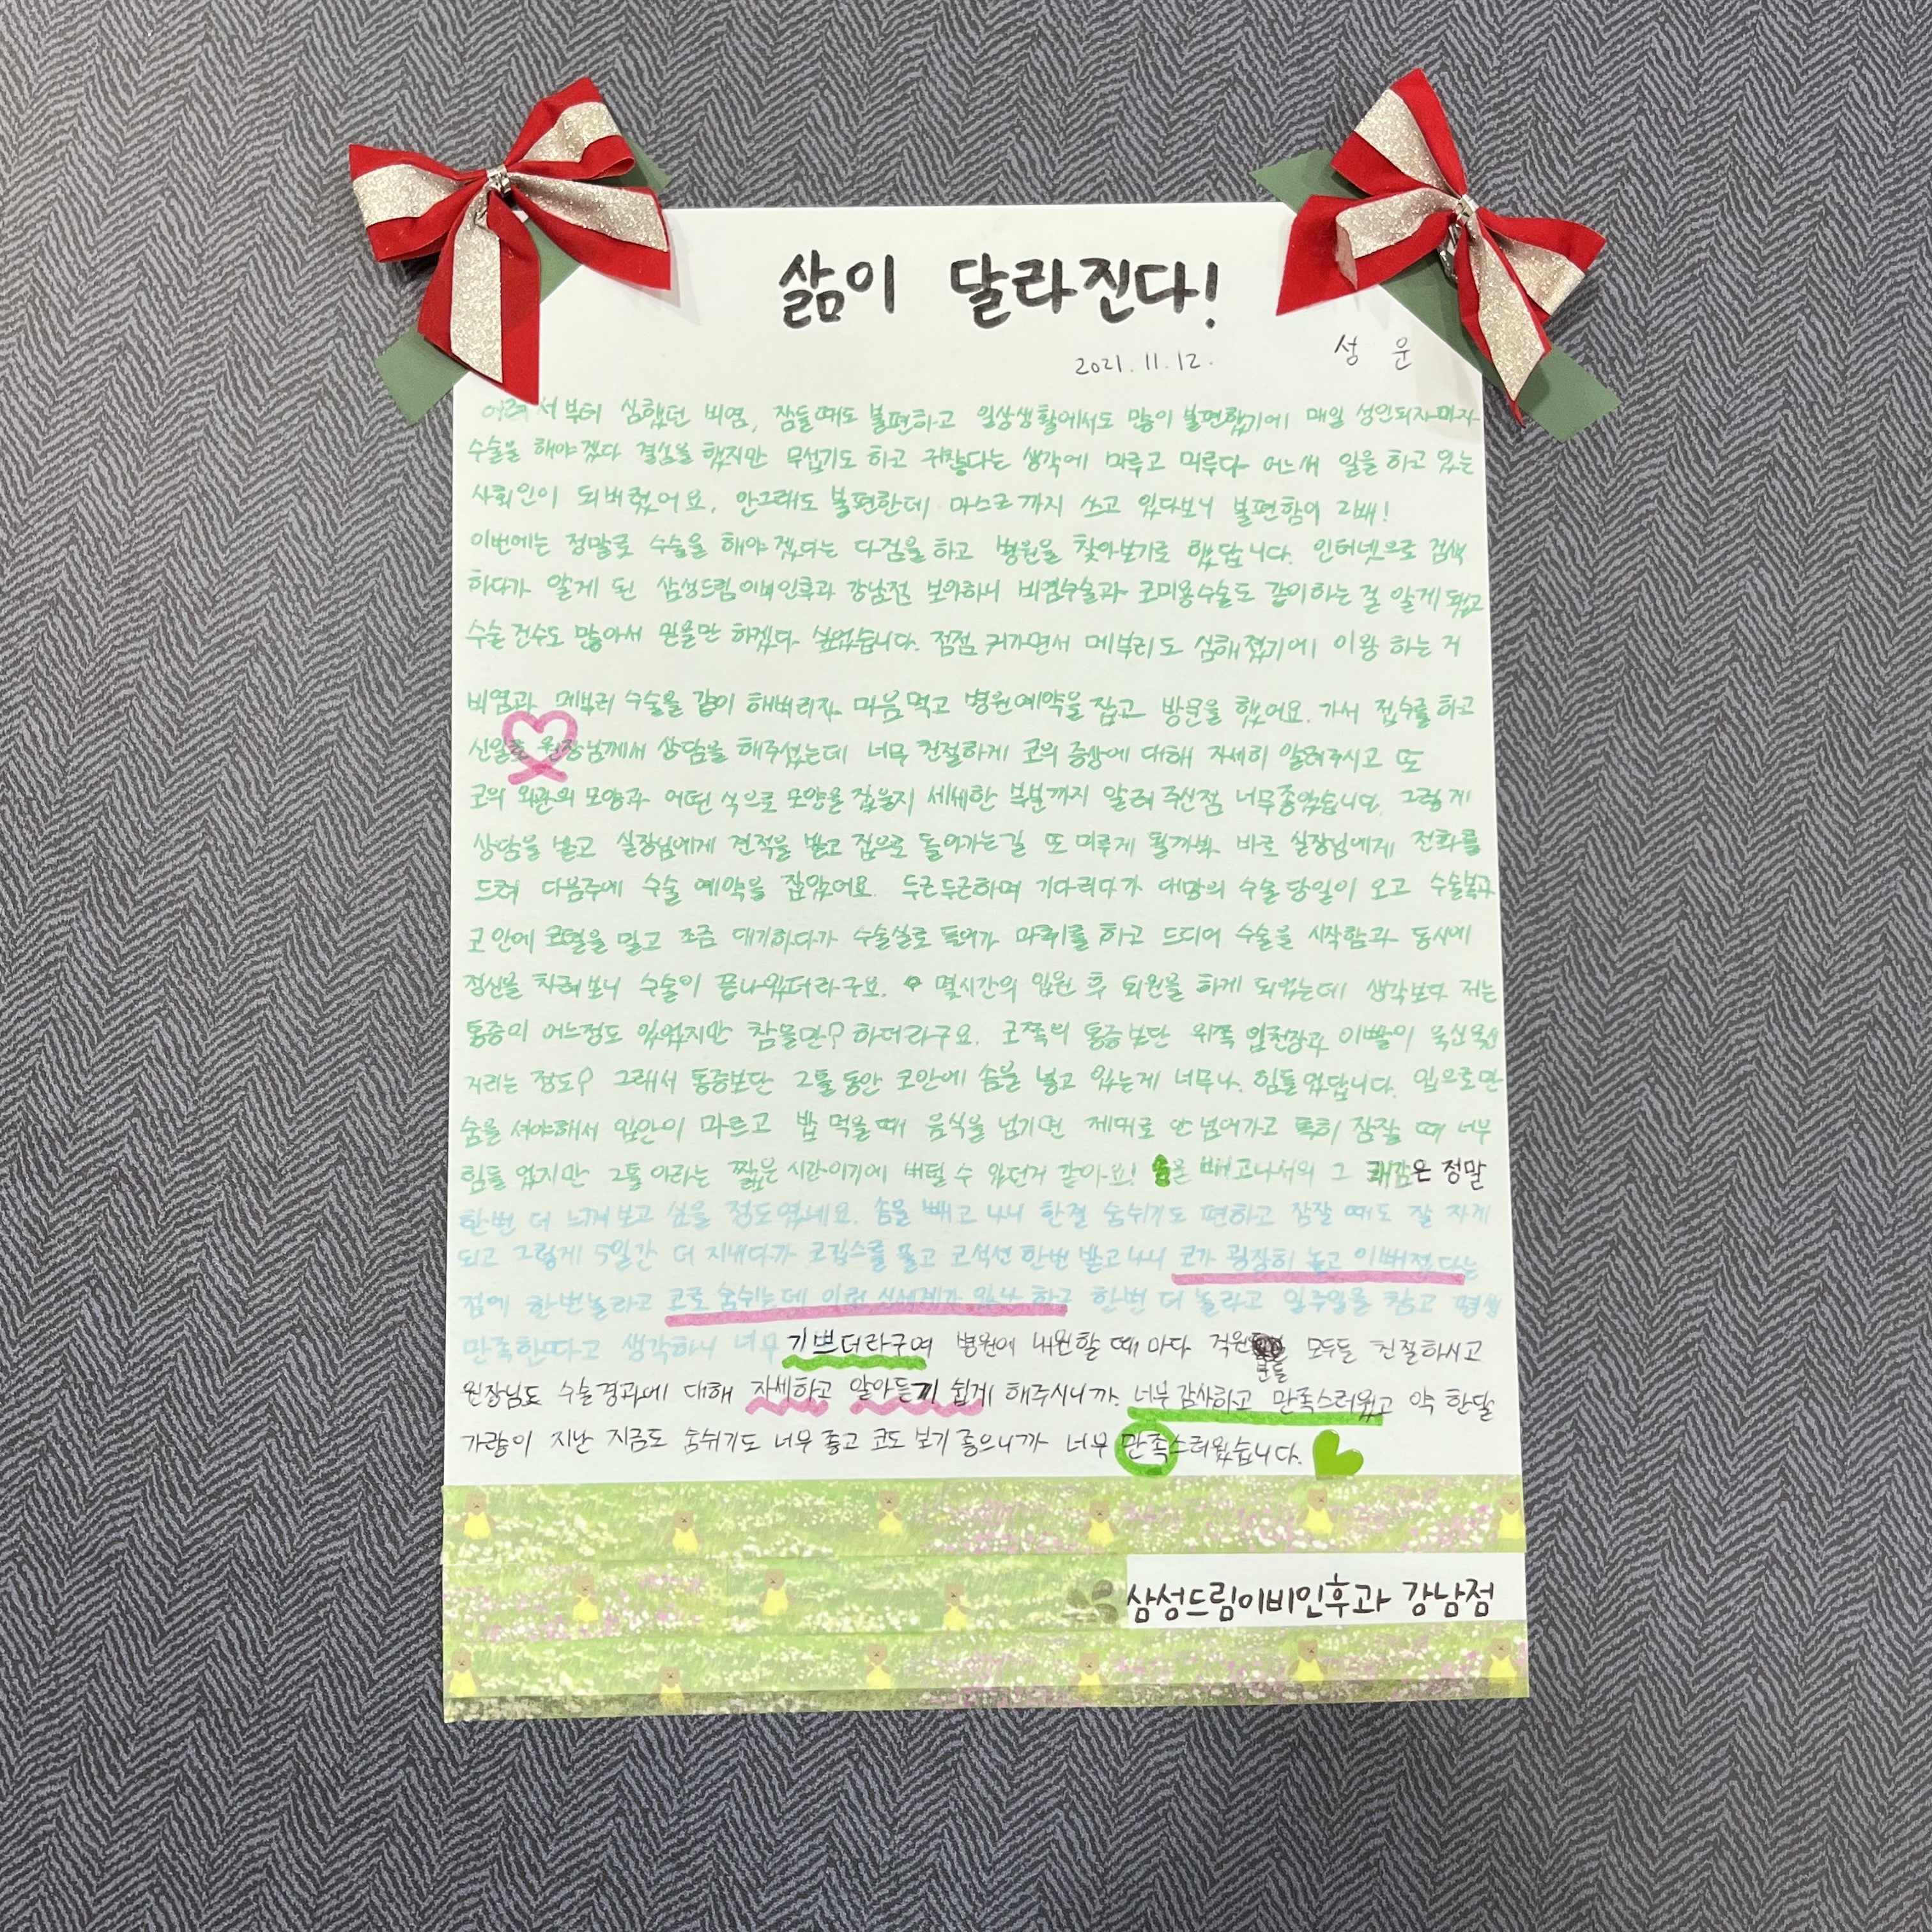 삶이 달라진다!
2021. 11. 12. 성 운
어려서부터 심했던 비염, 잠들때도 불편하고 일상생활에서도 많이 불편했기에 매일 성인되자마자
수술을 해야겠다 결심을 했지만 무섭기도 하고 귀찮다는 생각에 미루고 미루다 어느새 일을 하고 있는
사회인이 되버렸어요. 안그래도 불편한데 마스크까지 쓰고 있다보니 불편함이 2배!
이번에는 정말로 수술을 해야겠다는 다짐을 하고 병원을 찾아보기로 했답니다. 인터넷으로 검색
하다가 알게 된 삼성드림이비인후과 강남점 보아하니 비염수술과 코미용수술도 같이하는 걸 알게 됐고
수술 건수도 많아서 믿을만 하겠다 싶었습니다. 점점 커가면서 메부리도 심해졌기에 이왕 하는 거
비염과 메부리 수술을 같이 해버리자 마음먹고 병원예약을 잡고 방문을 했어요. 가서 접수를 하고
신일호 원장님께서 상담을 해주셨는데 너무 친절하게 코의 증상에 대해 자세히 알려주시고 또
코의 외관의 모양과 어떤 식으로 모양을 잡을지 세세한 부분까지 알려 주신점 너무좋았습니다. 그렇게
상담을 받고 실장님에게 견적을 받고 집으로 돌아가는길 또 미루게 될까봐 바로 실장님에게 전화를
드려 다음주에 수술 예약을 잡았어요. 두근두근하며 기다리다가 대망의 수술 당일이 오고 수술복과
코 안에 코털을 밀고 조금 대기하다가 수술실로 들어가 마취를 하고 드디어 수술을 시작함과 동시에
정신을 차려보니 수술이 끝나있더라구요. 몇시간의 입원 후 퇴원을 하게 되었는데 생각보다 저는
통증이 어느정도 있었지만 참을만? 하더라구요. 코쪽의 통증보단 위쪽 입천장과 이빨이 욱신욱신
거리는 정도? 그래서 통증보단 2틀 동안 코안에 솜을 넣고 있는게 너무나 힘들었답니다. 입으로만
숨을 쉬야해서 입안이 마르고 밥 먹을때 음식을 넘기면 제대로 안넘어가고 특히 잠잘 때 너무
힘들었지만 2틀이라는 짧은 시간이기에 버틸 수 있던거 같아요! 솜은 빼고나서의 그 쾌감은 정말
한번 더 느껴보고 싶을 정도였네요. 솜을 빼고 나니 한결 숨쉬기도 편하고 잠잘 때도 잘 자게
되고 그렇게 5일간 더 지내다가 코깁스를 풀고 코석션 한번 받고나니 코가 굉장히 높고 이뻐졌다는
점에 한번놀라고 코로 숨쉬는데 이런 신세계가 있나 하고 한번 더 놀라고 일주일을 참고 평생
만족한다고 생각하니 너무 기쁘더라구여 병원에 내원할 때 마다 직원분들 모두들 친절하시고
원장님도 수술경과에 대해 자세하고 알아듣기 쉽게 해주시니까 너무 감사하고 만족스러웠고 약 한달
가량이 지난 지금도 숨쉬기도 너무 좋고 코도 보기 좋으니까 너무 만족스러웠습니다.
삼성드림이비인후과 강남점